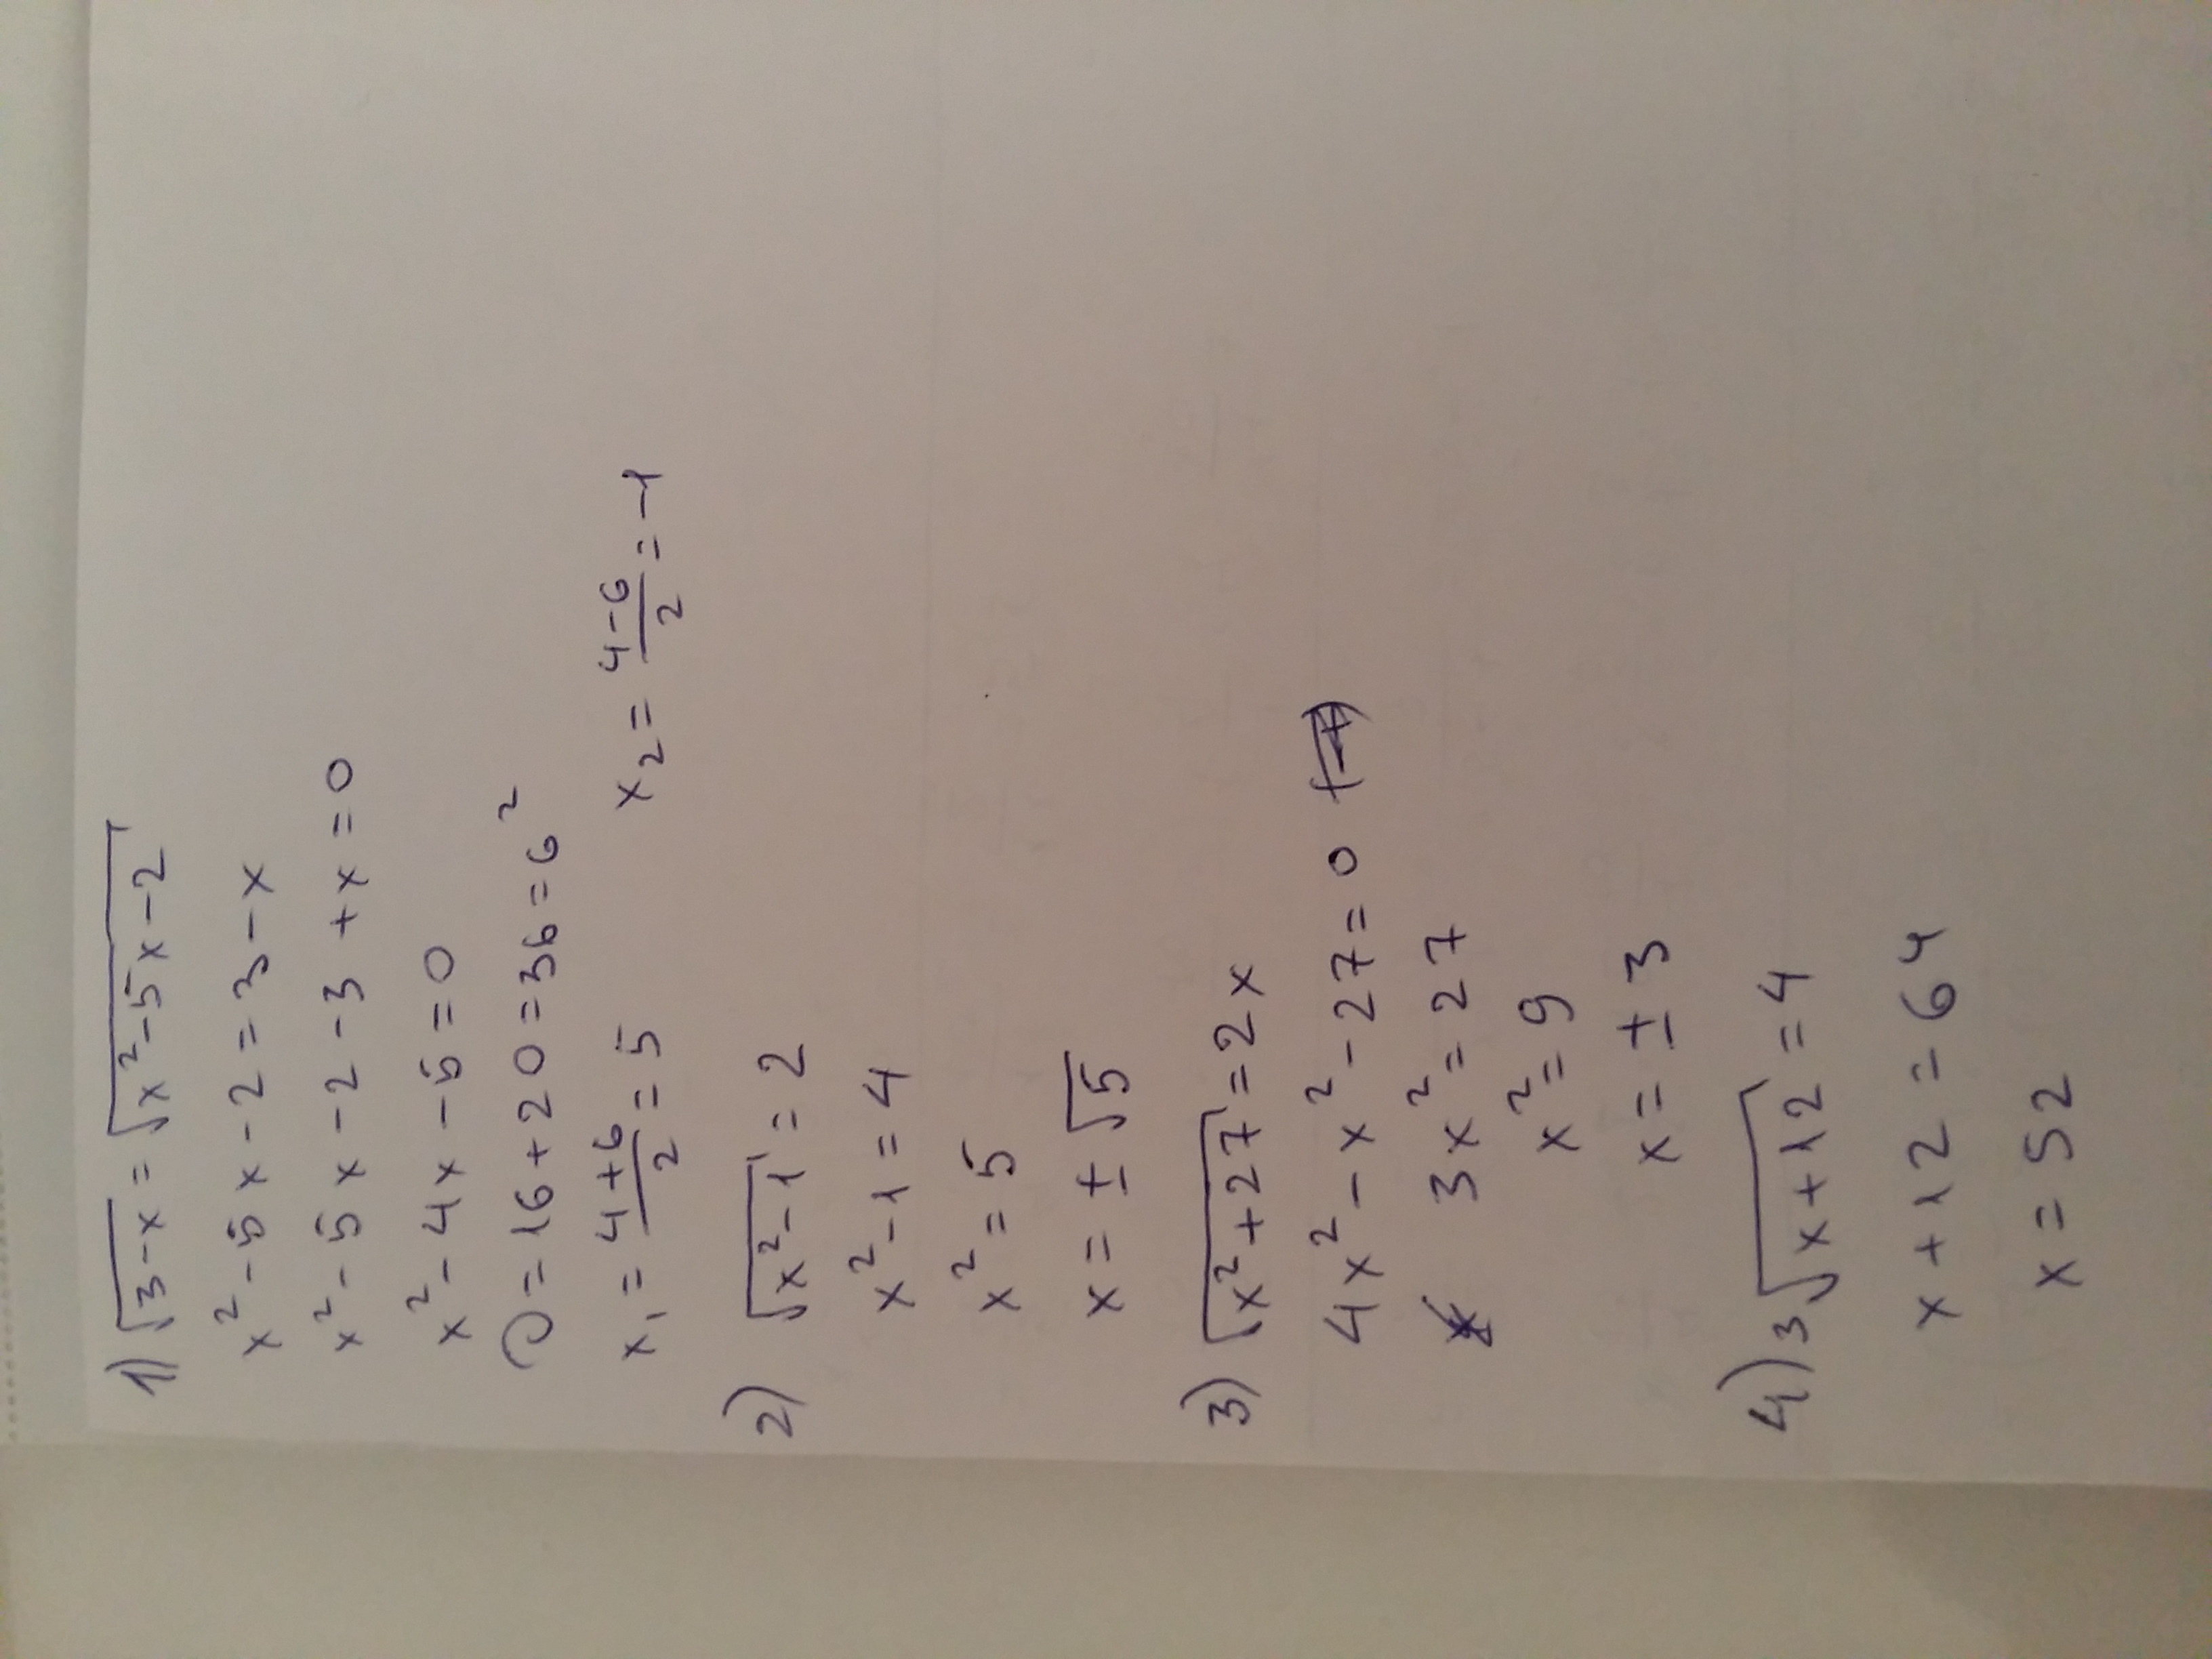 1) √3-x = √x²-5x-2
x²-5x-2=3-x
x²-5x-2-3+x=0
x²-4x-5=0
D=16+20=36=6²
x₁=4+6/2=5 x₂=4-6/2=-1
2) √x²-1=2
x²-1=4
x²=5
x=±√5
3) √x²+27=2x
4x²-x²-27=0
3x²=27
x²=9
x=±3
4) ³√x+12=4
x+12=64
x=52